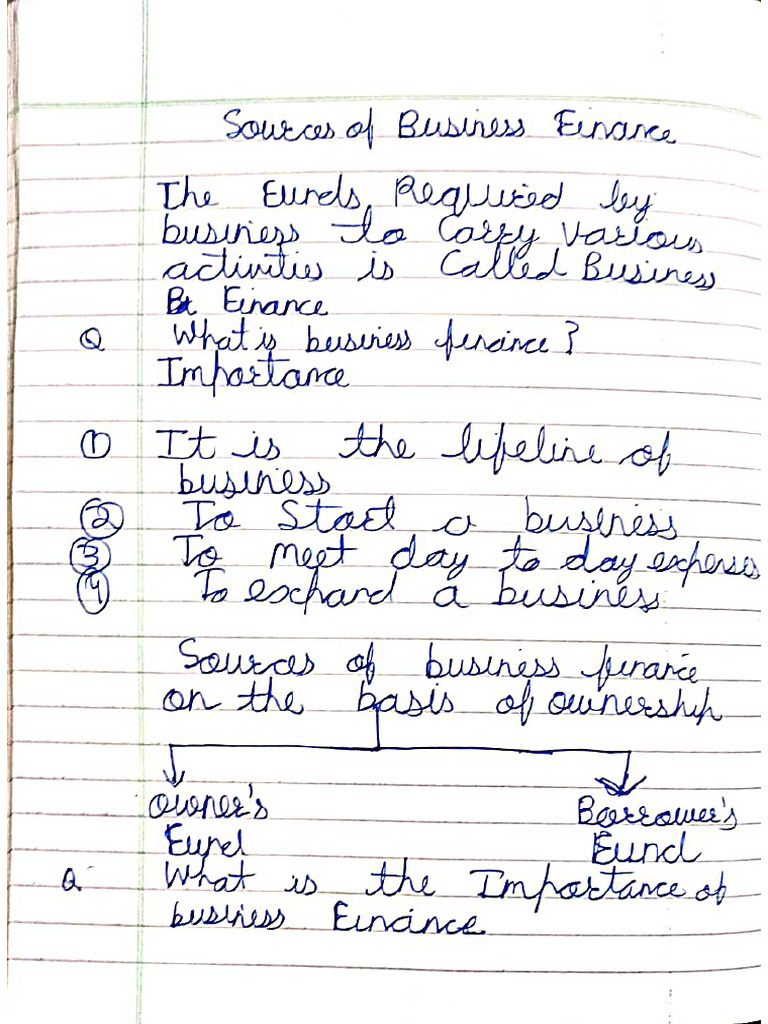 Sources of Business Finance
The Funds Required by
business to Carry Various
activities is Called Business
Finance
Q What is business finance?
Importance
① It is the lifeline of
business
② To Start a business
③ To meet day to day expenses
④ To expand a business
Sources of business finance
on the basis of ownership
Owner's Borrower's
Fund Fund
Q. What is the Importance of
business Finance